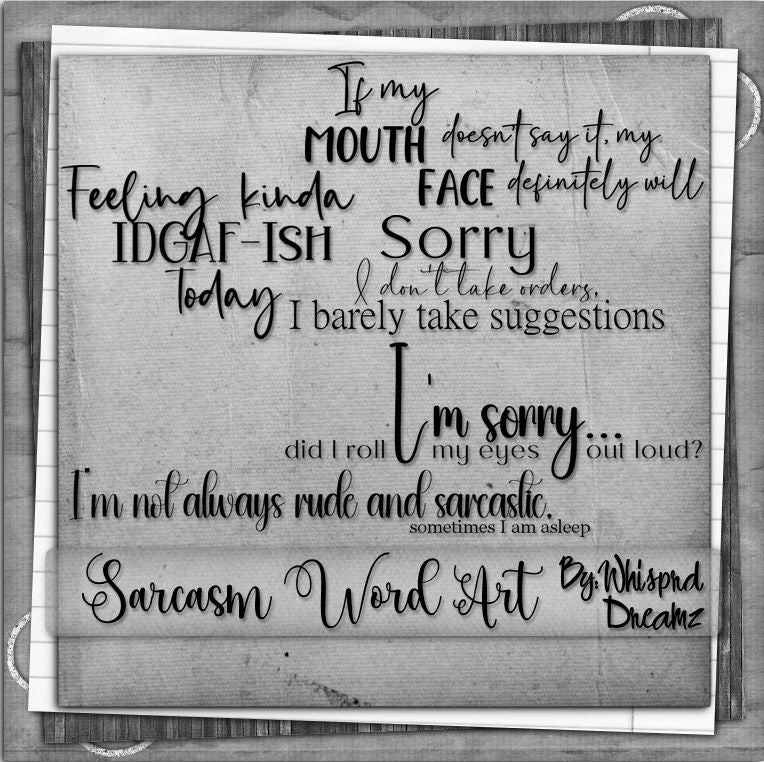 If my
MOUTH doesn't say it, my
FACE definitely will
Feeling kinda
IDGAF-ISH
Today
Sorry
I don't take orders,
I barely take suggestions
I'm sorry...
did I roll my eyes out loud?
I'm not always rude and sarcastic,
sometimes I am asleep
Sarcasm Word Art
By: Whisprd
Dreamz